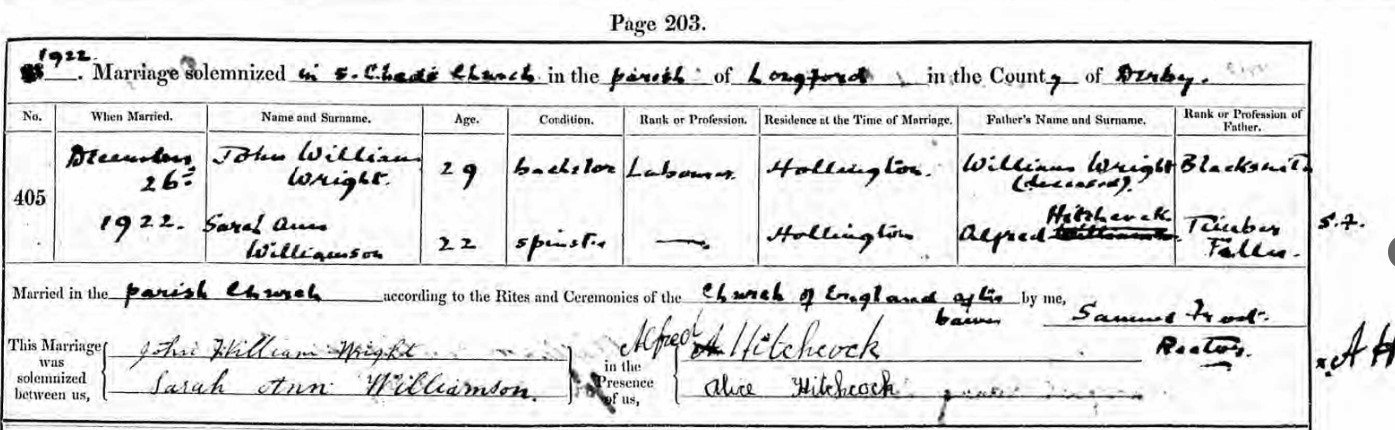 Page 203.
1922. Marriage solemnized in S. Chads Church in the parish of Longford in the County of Derby.
No. When Married. Name and Surname. Age. Condition. Rank or Profession. Residence at the Time of Marriage. Father's Name and Surname. Rank or Profession of Father.
405
December 26th 1922.
John William Wright. 29 bachelor Labourer. Hollington. William Wright (deceased). Blacksmith
Sarah Ann Williamson 22 spinster — Hollington Alfred Hitchcock Timber Feller.
S.F.
Married in the parish Church according to the Rites and Ceremonies of the Church of England after banns by me,
Samuel Frost. Rector.
This Marriage was solemnized between us, John William Wright
Sarah Ann Williamson.
in the Presence of us, Alfred Hitchcock
Alice Hitchcock
x A H